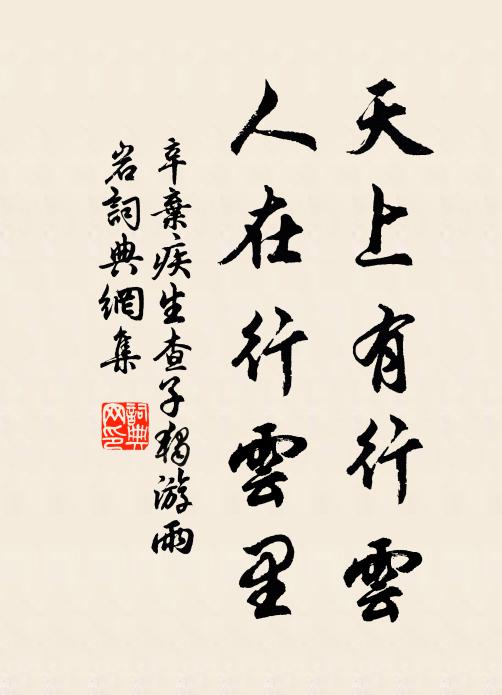 天上有行雲
人在行雲里
辛棄疾生查子獨游雨
岩詞典網集
詞典网印